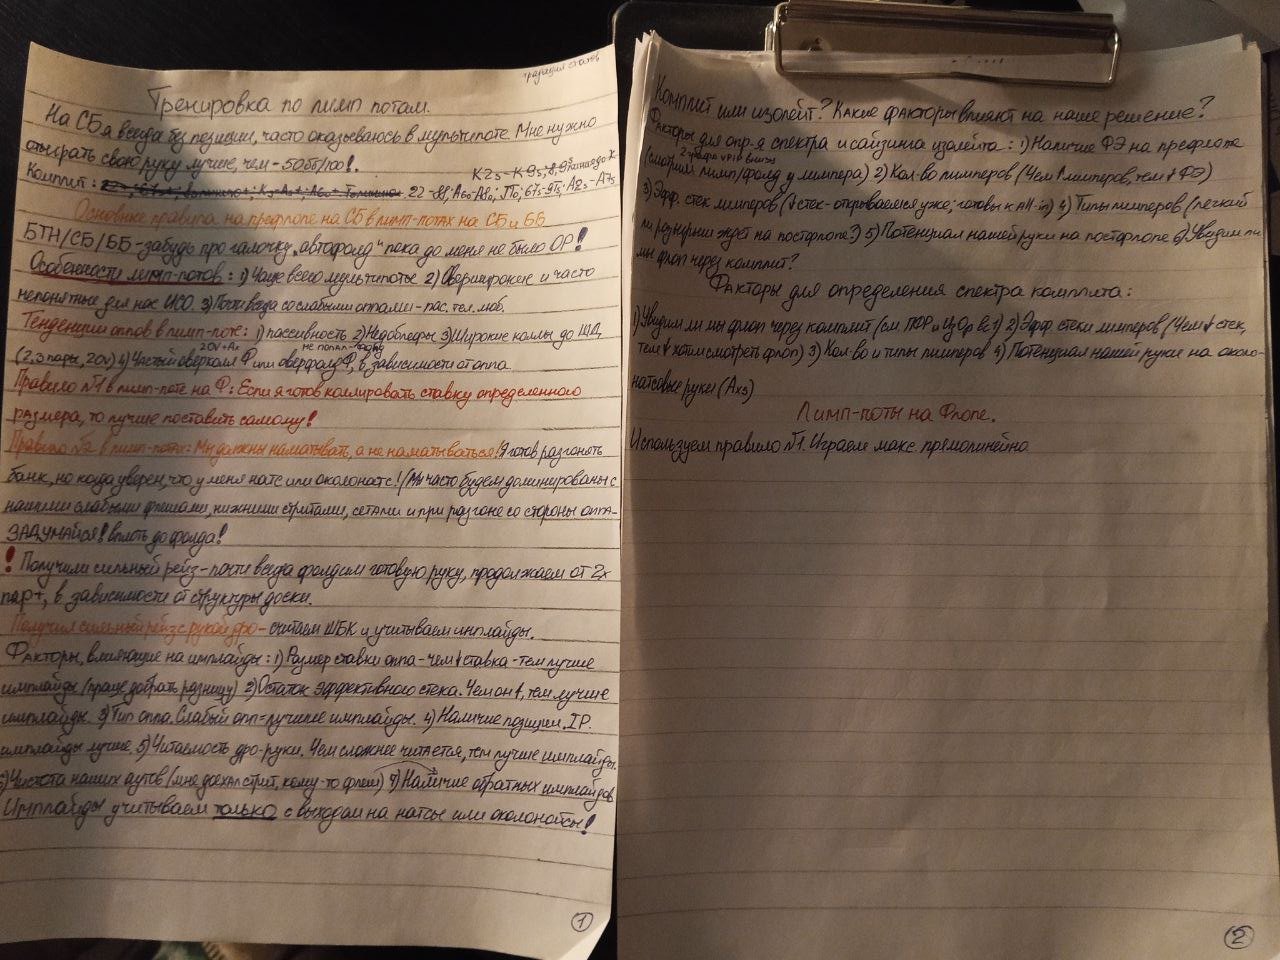 Тренировка по лимп потам.
На СБ я всегда без позиции, часто оказываюсь в мультипоте. Мне нужно
отыграть свою руку лучше, чем -50бб/100!
K2s-K9s,
Комплит: 22-88; A6o-A8o; 67s-9Ts; A2s-A7s
Основные правила на префлопе на СБ в лимп-потах на СБ и ББ
БТН/СБ/ББ - забудь про галочку "автофолд" пока до меня не было ОР!
Особенности лимп-потов: 1) Чаще всего мультипоты 2) Оверширокие и часто
непонятные для нас ИСО. 3) Почти всегда со слабыми оппами - пас. тел. люб.
Тенденции оппов в лимп-поте: 1) пассивность 2) Недоблефы 3) Широкие коллы до ШД,
(2,3 пары, 20v) 4) Частый оверколл Ф или оверфолд Ф, в зависимости от оппа
Правило №1 в лимп-поте на Ф: Если я готов коллировать ставку определенного
размера, то лучше поставить самому!
Правило №2 в лимп-поте: Мы должны наматывать, а не наматываться! Я готов разгонять
банк, но когда уверен, что у меня натс или околонатс! (Мы часто будем доминированы с
нашими слабыми флешами, нижними стритами, сетами и при разгоне со стороны оппа-
ЗАДУМАЙСЯ! вплоть до фолда!
! Получили сильный рейз - почти всегда фолдим готовую руку, продолжаем от 2х
пар+, в зависимости от структуры доски.
Получил сильный рейз с рукой дро - считаем ШБК и учитываем имплайды.
Факторы, влияющие на имплайды: 1) Размер ставки оппа - чем ↓ ставка - тем лучше
имплайды (проще добрать разницу) 2) Остаток эффективного стека. Чем он ↑, тем лучше
имплайды. 3) Тип оппа. Слабый опп = лучшие имплайды. 4) Наличие позиции. IP.
имплайды лучше. 5) Читаемость дро-руки. Чем сложнее читается, тем лучше имплайды.
6) Чистота наших аутов (мне доехал стрит, кому-то флеш) 7) Наличие обратных имплайдов
Имплайды учитываем только с выходом на натсы или околонатсы!
1
Комплит или изолейт? Какие факторы влияют на наше решение?
Факторы для опр-я спектра и сайзинга изолейта: 1) Наличие ФЭ на префлопе
(смотрим лимп/фолд у лимпера) 2) Кол-во лимперов (Чем ↑ лимперов, тем ↓ ФЭ)
3) Эфф. стек лимперов (↓ стек - открываемся уже; готовы к All-in) 4) Типы лимперов (легкий
ли розыгрыш ждёт на постфлопе?) 5) Потенциал нашей руки на постфлопе 6) Увидим ли
мы флоп через комплит?
Факторы для определения спектра комплита:
1) Увидим ли мы флоп через комплит (см. ПФР и Из Ор вс 1) 2) Эфф стеки лимперов (Чем ↓ стек,
тем ↓ хотим смотреть флоп) 3) Кол-во и типы лимперов 4) Потенциал нашей руки на около-
натсовые руки (Axs)
Лимп-поты на Флопе.
Используем правило №1. Играем макс. прямолинейно
2